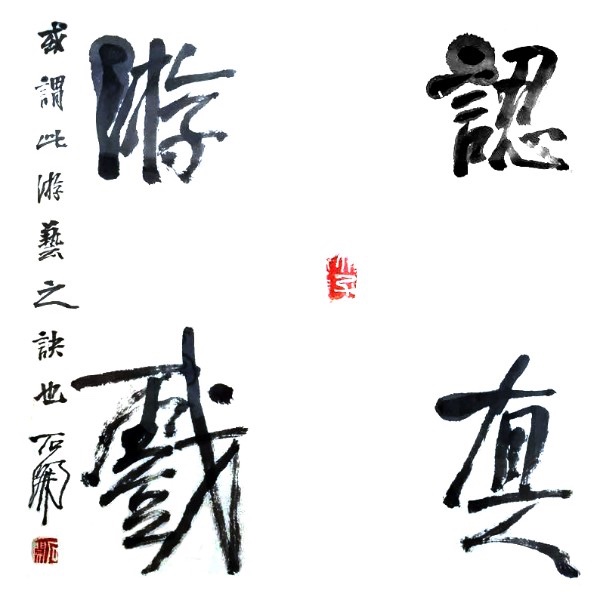 認真
游戲
或謂此游藝之訣也